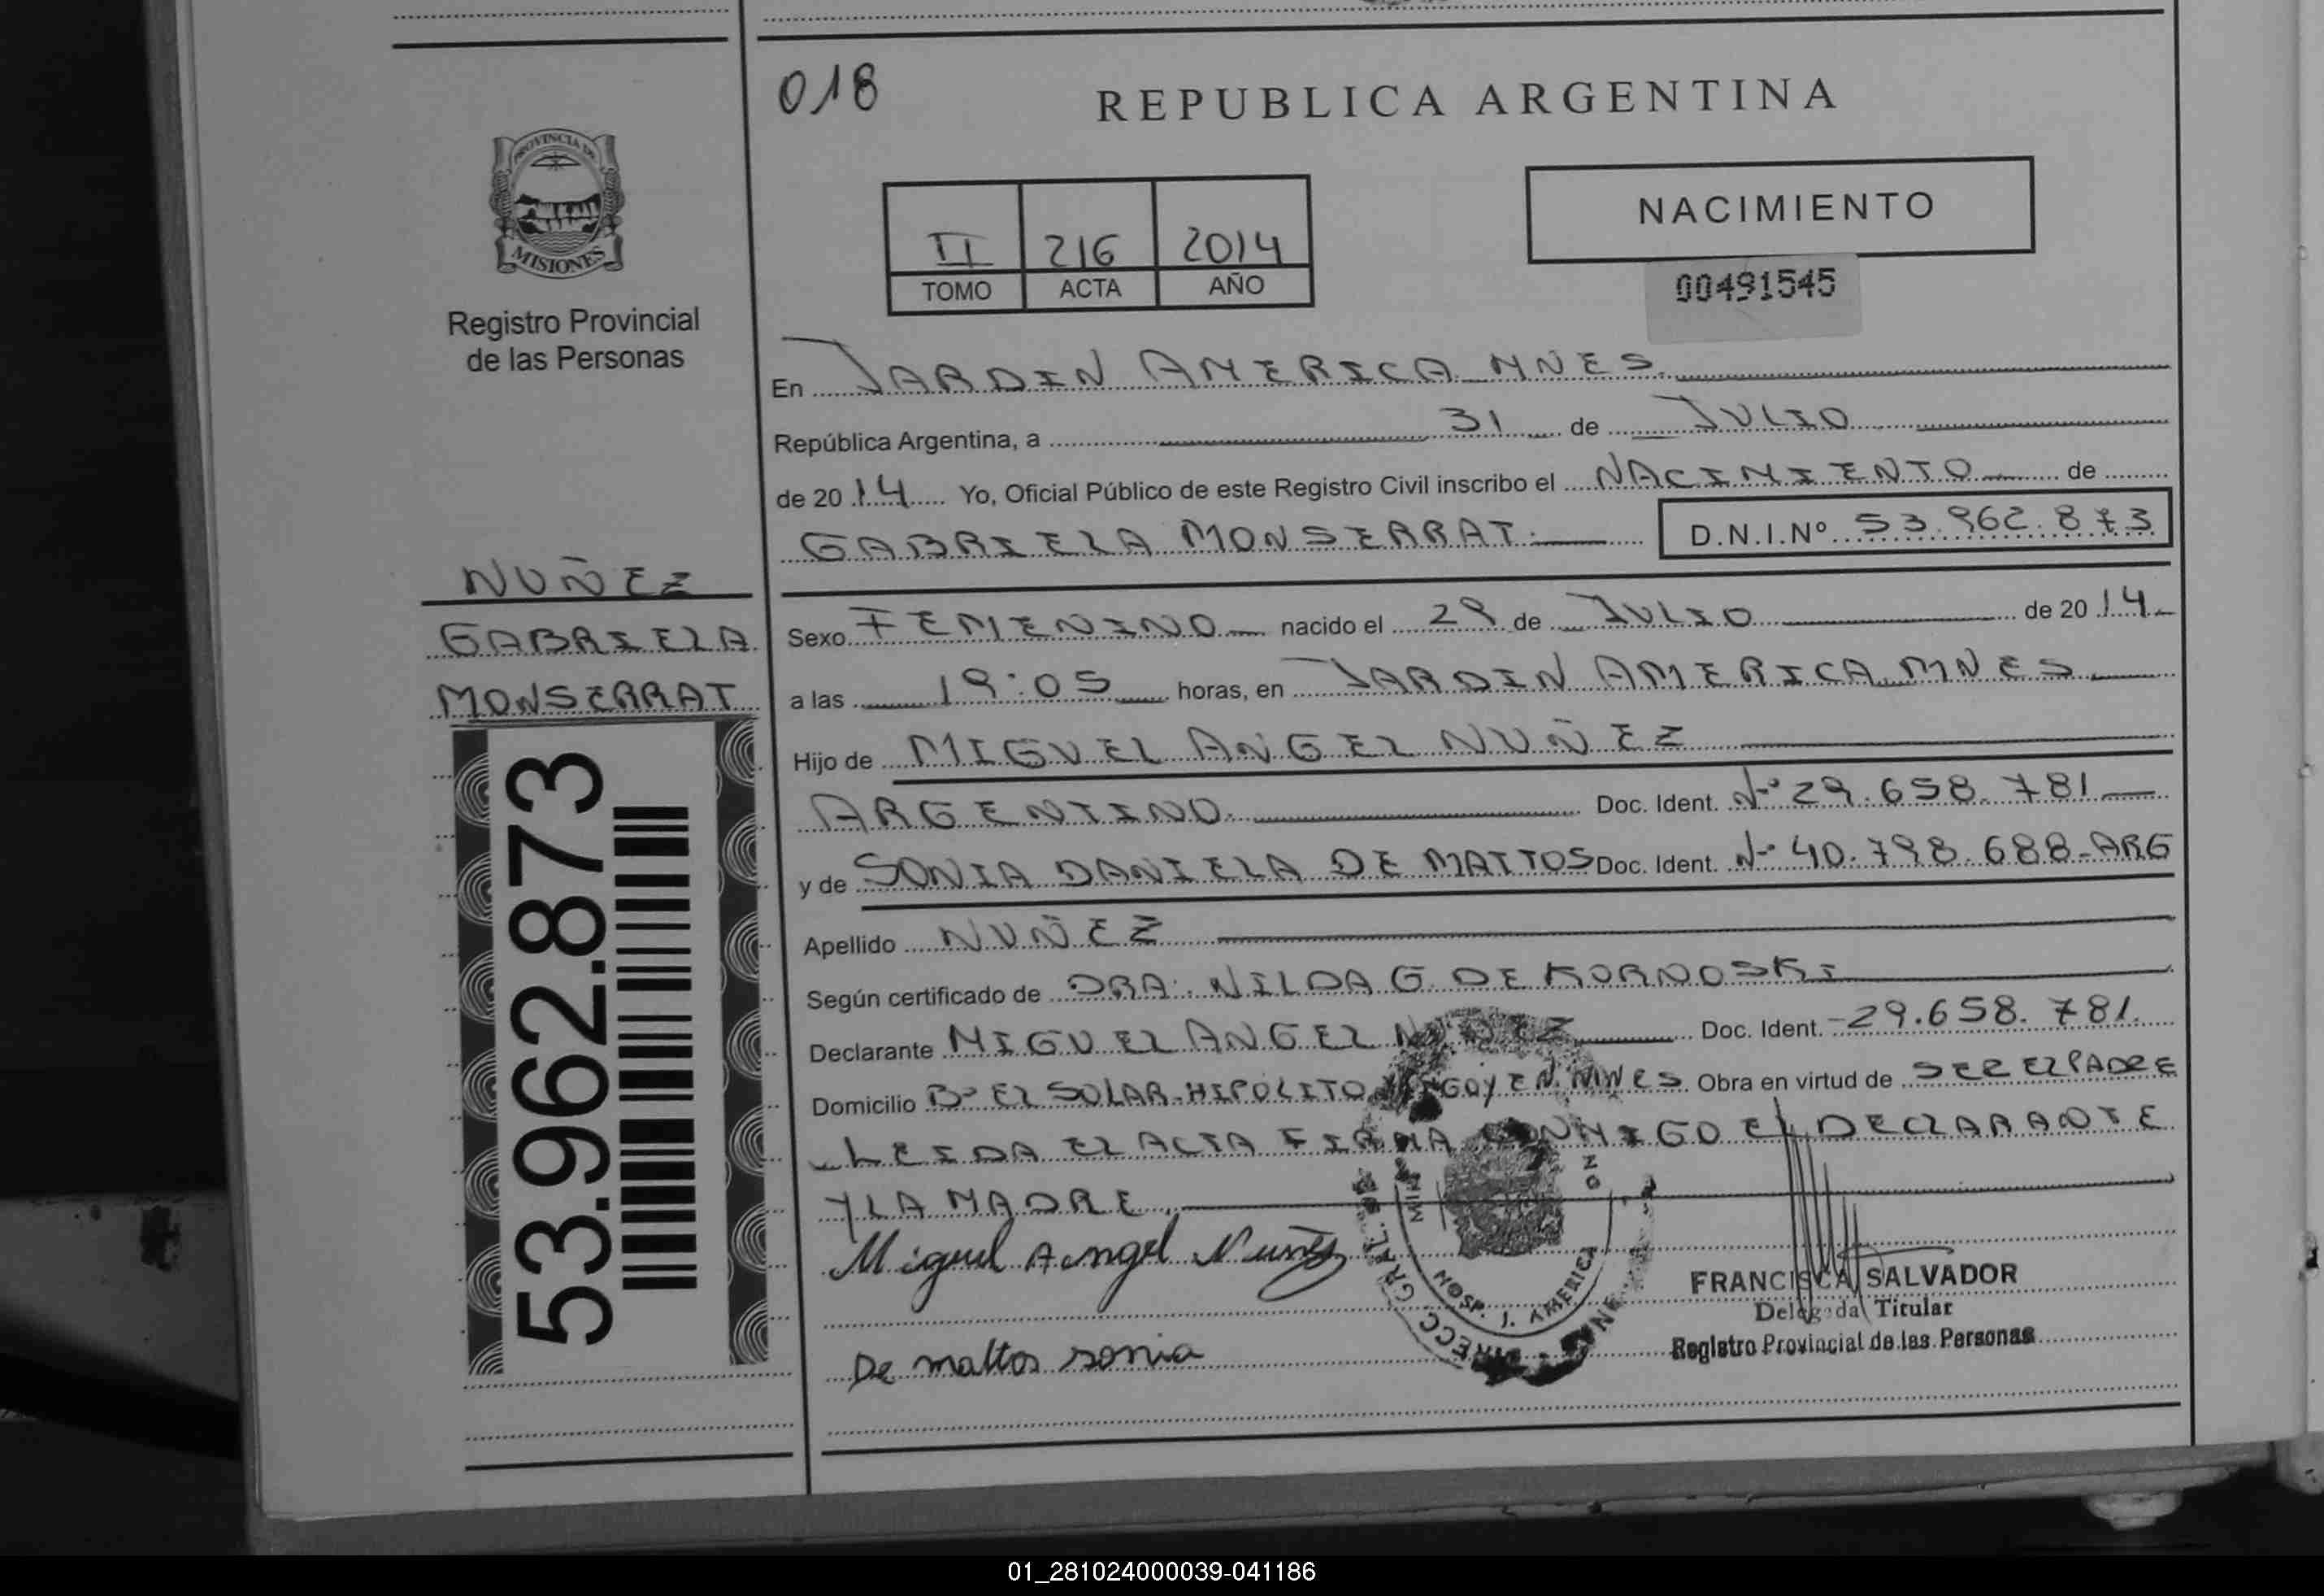 018
REPUBLICA ARGENTINA
PROVINCIA DE
MISIONES
Registro Provincial
de las Personas
II 216 2014
TOMO ACTA AÑO
NACIMIENTO
00491545
En JARDIN AMERICA MNES.
República Argentina, a 31 de JULIO
de 2014 Yo, Oficial Público de este Registro Civil inscribo el NACIMIENTO de
GABRIELA MONSERRAT. D.N.I.Nº 53.962.873
NUÑEZ
GABRIELA
MONSERRAT
53.962.873
Sexo FEMENINO nacido el 29 de JULIO de 2014
a las 19:05 horas, en JARDIN AMERICA MNES
Hijo de MIGUEL ANGEL NUÑEZ
ARGENTINO. Doc. Ident. Nº 29.658.781
y de SONIA DANIELA DE MATTOS Doc. Ident. Nº 40.798.688-ARG
Apellido NUÑEZ
Según certificado de DRA. NILDA G. DE KORNOSKI
Declarante MIGUEL ANGEL NUÑEZ Doc. Ident. 29.658.781.
Domicilio Bº EL SOLAR-HIPOLITO YRIGOYEN. MNES Obra en virtud de SER EL PADRE
LEIDA EL ACTA FIRMA CONMIGO EL DECLARANTE
Y LA MADRE.
Miguel Angel Nuñez
De mattos sonia
DIRECC GRAL.
HOSP. J. AMERICA
FRANCISCA SALVADOR
Delegada Titular
Registro Provincial de las Personas
01_281024000039-041186